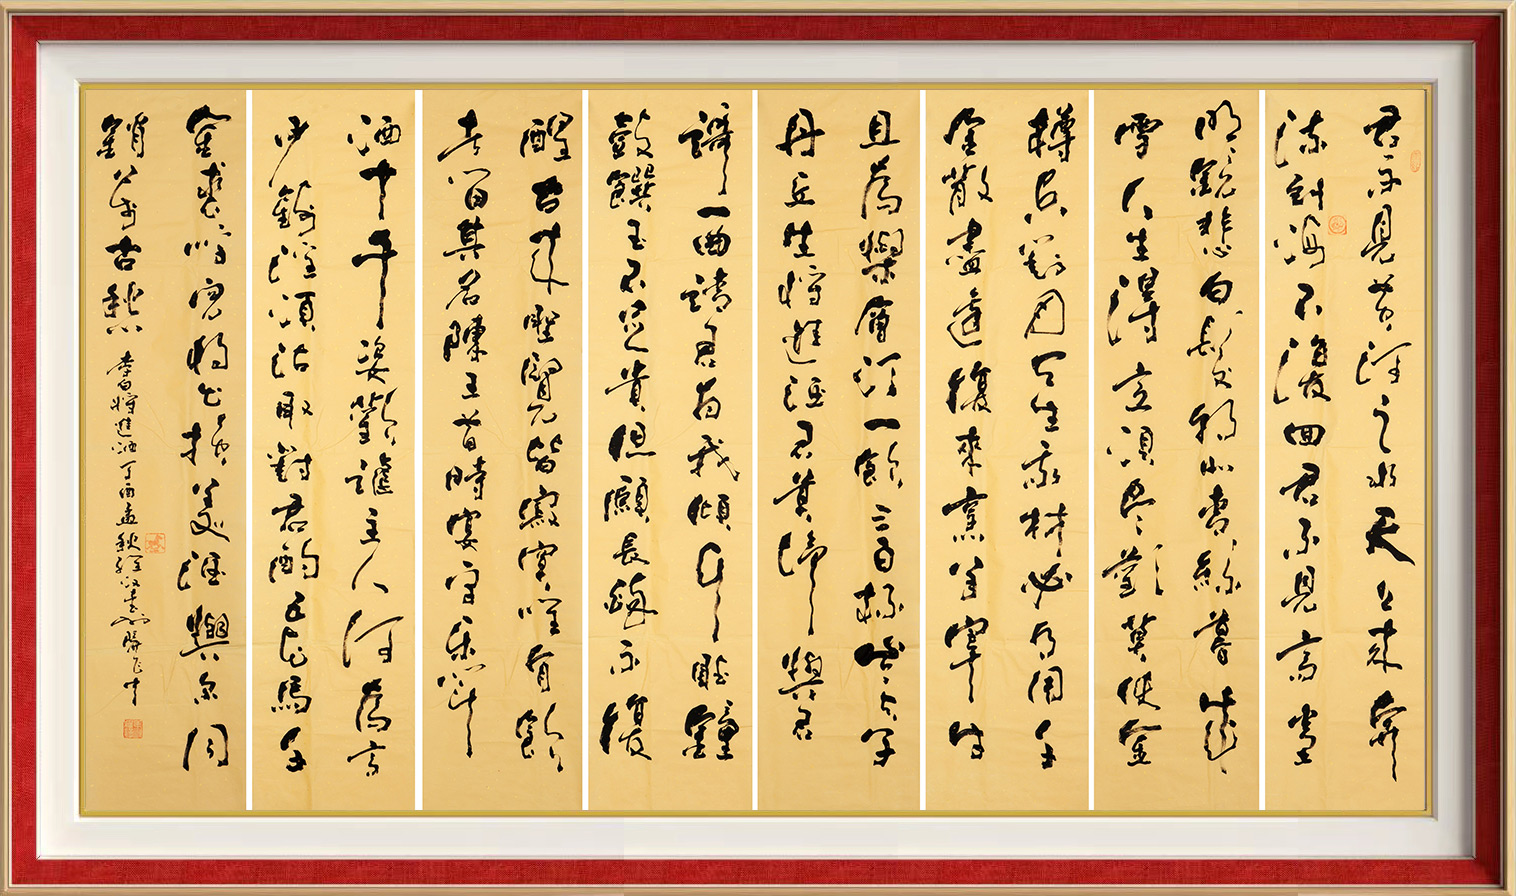 君不見黄河之水天上来奔
流到海不復回君不見高堂
明鏡悲白髮朝如青絲暮成
雪人生得意須盡歡莫使金
樽空對月天生我材必有用千
金散盡還復來烹羊宰牛
且為樂會須一飲三百杯岑夫子
丹丘生將進酒君莫停與君
謌一曲請君為我傾耳聽鐘
鼓饌玉不足貴但願長醉不復
醒古来聖賢皆寂寞唯有飲
者留其名陳王昔時宴平樂斗
酒十千恣歡謔主人何為言
少錢徑須沽取對君酌五花馬千
金裘呼兒將出換美酒與尔同
銷萬古愁
李白將進酒丁酉孟秋